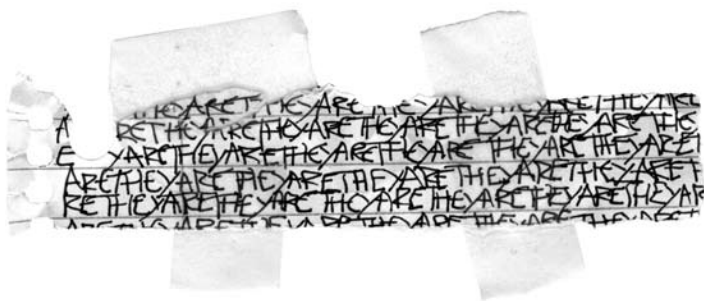 THEYARET HEYARE THEYARE THEYARETHEYARE
A RETHEYARETHEYARETHEYARETHEYARETHEYARETHE
E YARETHEYARETHEYARETHEYARE THEYARETHEYARET
ARETHEYARETHEYARETHEYARE THEYARETHEYARETHE
RETHEYARETHEYARE THEYARETHEYARETHEYARETHEYAR
ARETHEYARETHEYARETHEYARETHEYARETHEYARET